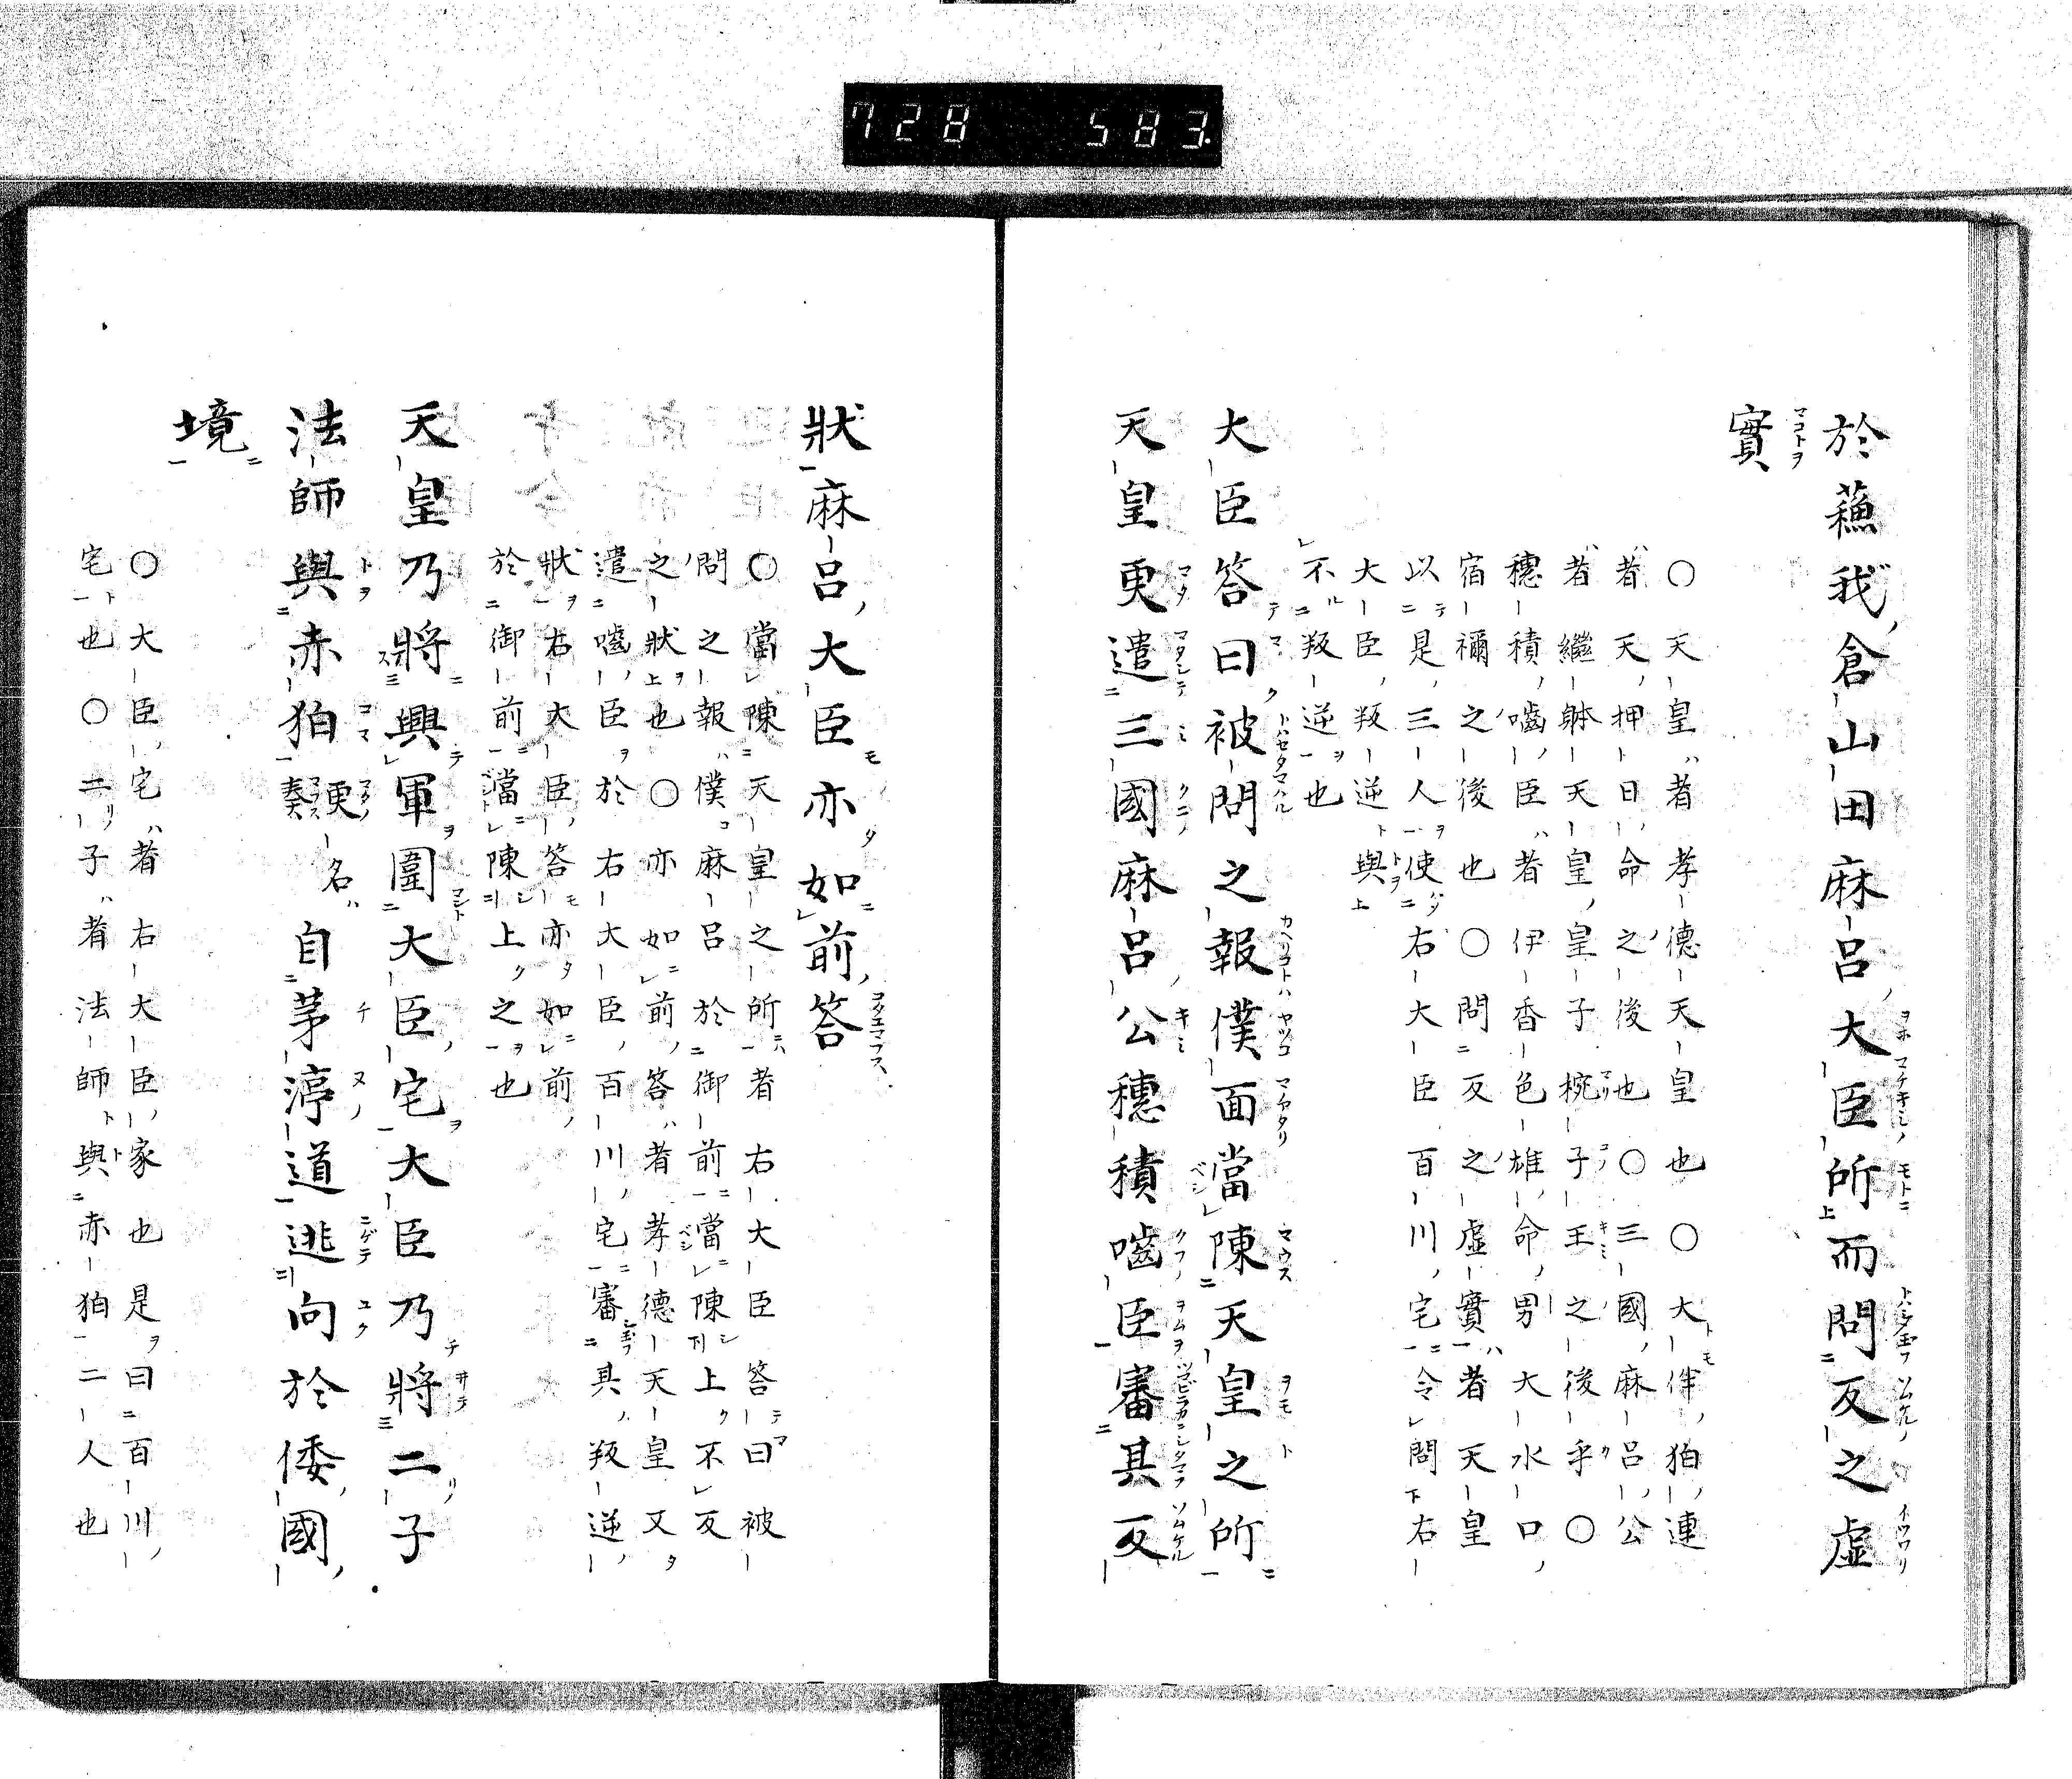 728 583.
於蘓我倉山田麻呂大臣所而問反之虛
實
〇天皇者孝德天皇也〇大伴狛連
者天押日命之後也〇三國麻呂公
者繼躰天皇皇子椀子王之後乎〇
穗積嚙臣者伊香色雄命男大水口
宿禰之後也〇問反之虛實者天皇
以是三人使右大臣百川宅令問右
大臣叛逆與
不叛逆也
大臣答曰被問之報僕面當陳天皇之所
天皇更遣三國麻呂公穗積嚙臣審其反
狀麻呂大臣亦如前答
〇當陳天皇之所者右大臣答曰被
問之報僕麻呂於御前當陳上不反
之狀也〇亦如前答者孝德天皇又
遣嚙臣於右大臣百川宅審其叛逆
狀右大臣答亦如前
於御前當陳上之也
天皇乃將興軍圍大臣宅大臣乃將二子
法師與赤狛更名秦自茅渟道逃向於倭國
境
〇大臣宅者右大臣家也是曰百川
宅也〇二子者法師與赤狛二人也